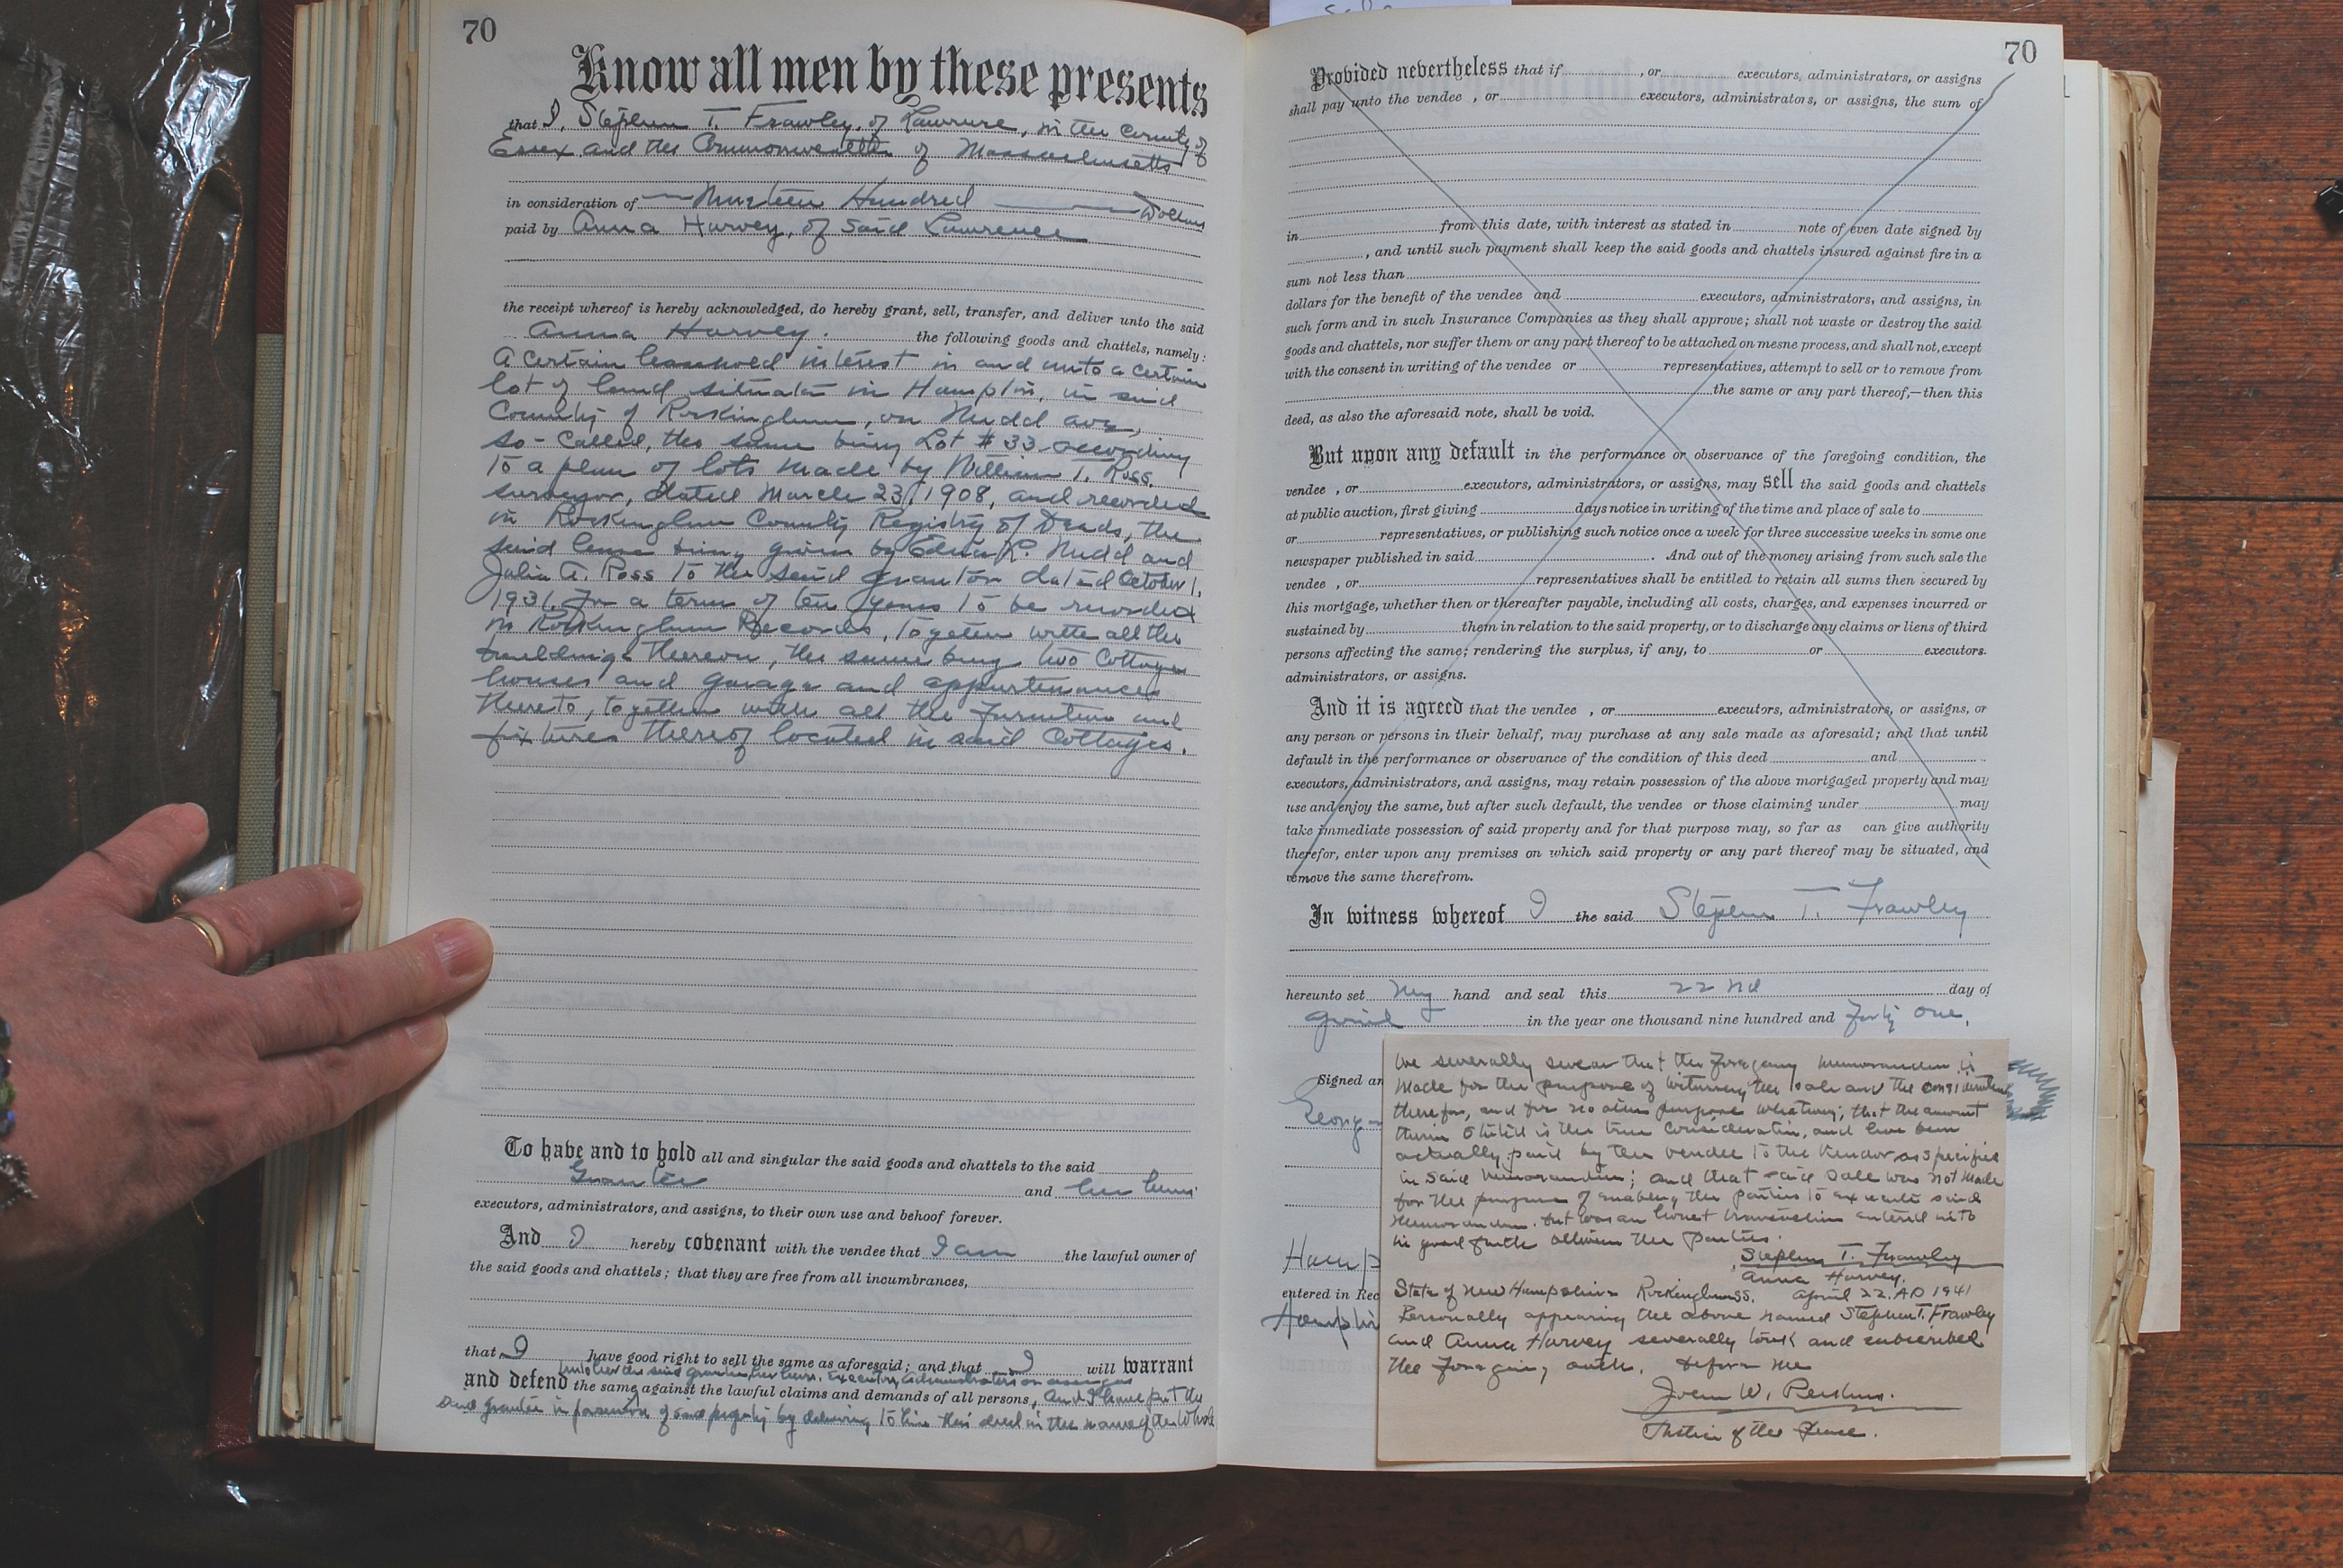 70
Know all men by these presents
that I, Stephen T. Frawley, of Lawrence, in the County of
Essex and the Commonwealth of Massachusetts
in consideration of Nineteen Hundred Dollars
paid by Anna Harvey, of said Lawrence
the receipt whereof is hereby acknowledged, do hereby grant, sell, transfer, and deliver unto the said
Anna Harvey. the following goods and chattels, namely:
A certain leasehold interest in and unto a certain
lot of land situate in Hampton, in said
County of Rockingham, on Nudd ave,
so-called, the same being Lot # 33 according
to a plan of lots made by William T. Ross.
surveyor, dated March 23, 1908, and recorded
in Rockingham County Registry of Deeds, the
said lease being given by L. Nudd and
Julia A. Ross to the said grantor dated October 1,
1931. For a term of ten years to be recorded
in Rockingham Records, together with all the
buildings thereon, the same being two Cottage
houses and garage and appurtenances
thereto, together with all the furniture and
fixtures thereof located in said Cottages.
To have and to hold all and singular the said goods and chattels to the said
Grantee and her heirs
executors, administrators, and assigns, to their own use and behoof forever.
And I hereby covenant with the vendee that I am the lawful owner of
the said goods and chattels; that they are free from all incumbrances,
that I have good right to sell the same as aforesaid; and that I will warrant
unto her the said grantee, her heirs, executors, administrators or assigns
and defend the same against the lawful claims and demands of all persons, And I have put the
said grantee in possession of said property by delivering to him this deed in the name of the whole
70
Provided nevertheless that if , or executors, administrators, or assigns
shall pay unto the vendee , or executors, administrators, or assigns, the sum of
in from this date, with interest as stated in note of even date signed by
, and until such payment shall keep the said goods and chattels insured against fire in a
sum not less than
dollars for the benefit of the vendee and executors, administrators, and assigns, in
such form and in such Insurance Companies as they shall approve; shall not waste or destroy the said
goods and chattels, nor suffer them or any part thereof to be attached on mesne process, and shall not, except
with the consent in writing of the vendee or representatives, attempt to sell or to remove from
the same or any part thereof,—then this
deed, as also the aforesaid note, shall be void.
But upon any default in the performance or observance of the foregoing condition, the
vendee , or executors, administrators, or assigns, may sell the said goods and chattels
at public auction, first giving days notice in writing of the time and place of sale to
or representatives, or publishing such notice once a week for three successive weeks in some one
newspaper published in said . And out of the money arising from such sale the
vendee , or representatives shall be entitled to retain all sums then secured by
this mortgage, whether then or thereafter payable, including all costs, charges, and expenses incurred or
sustained by them in relation to the said property, or to discharge any claims or liens of third
persons affecting the same; rendering the surplus, if any, to or executors.
administrators, or assigns.
And it is agreed that the vendee , or executors, administrators, or assigns, or
any person or persons in their behalf, may purchase at any sale made as aforesaid; and that until
default in the performance or observance of the condition of this deed and
executors, administrators, and assigns, may retain possession of the above mortgaged property and may
use and enjoy the same, but after such default, the vendee or those claiming under may
take immediate possession of said property and for that purpose may, so far as can give authority
therefor, enter upon any premises on which said property or any part thereof may be situated, and
remove the same therefrom.
In witness whereof I the said Stephen T. Frawley
hereunto set my hand and seal this 22nd day of
April in the year one thousand nine hundred and forty one.
Signed an
Georg
Hamp
entered in Rec
Hampto
We severally swear that the foregoing memorandum is
made for the purpose of witnessing the sale and the consideration
therefor, and for no other purpose whatever; that the amount
therein stated is the true consideration, and has been
actually paid by the vendee to the vendor as specified
in said memorandum; and that said sale was not made
for the purpose of enabling the parties to execute said
memorandum. but was an honest transaction entered into
in good faith between the parties.
Stephen T. Frawley
Anna Harvey.
State of New Hampshire Rockingham SS. April 22. AD 1941
Personally appearing the above named Stephen T. Frawley
and Anna Harvey severally took and subscribed
the foregoing oath. before me
John W. Perkins.
Justice of the Peace.